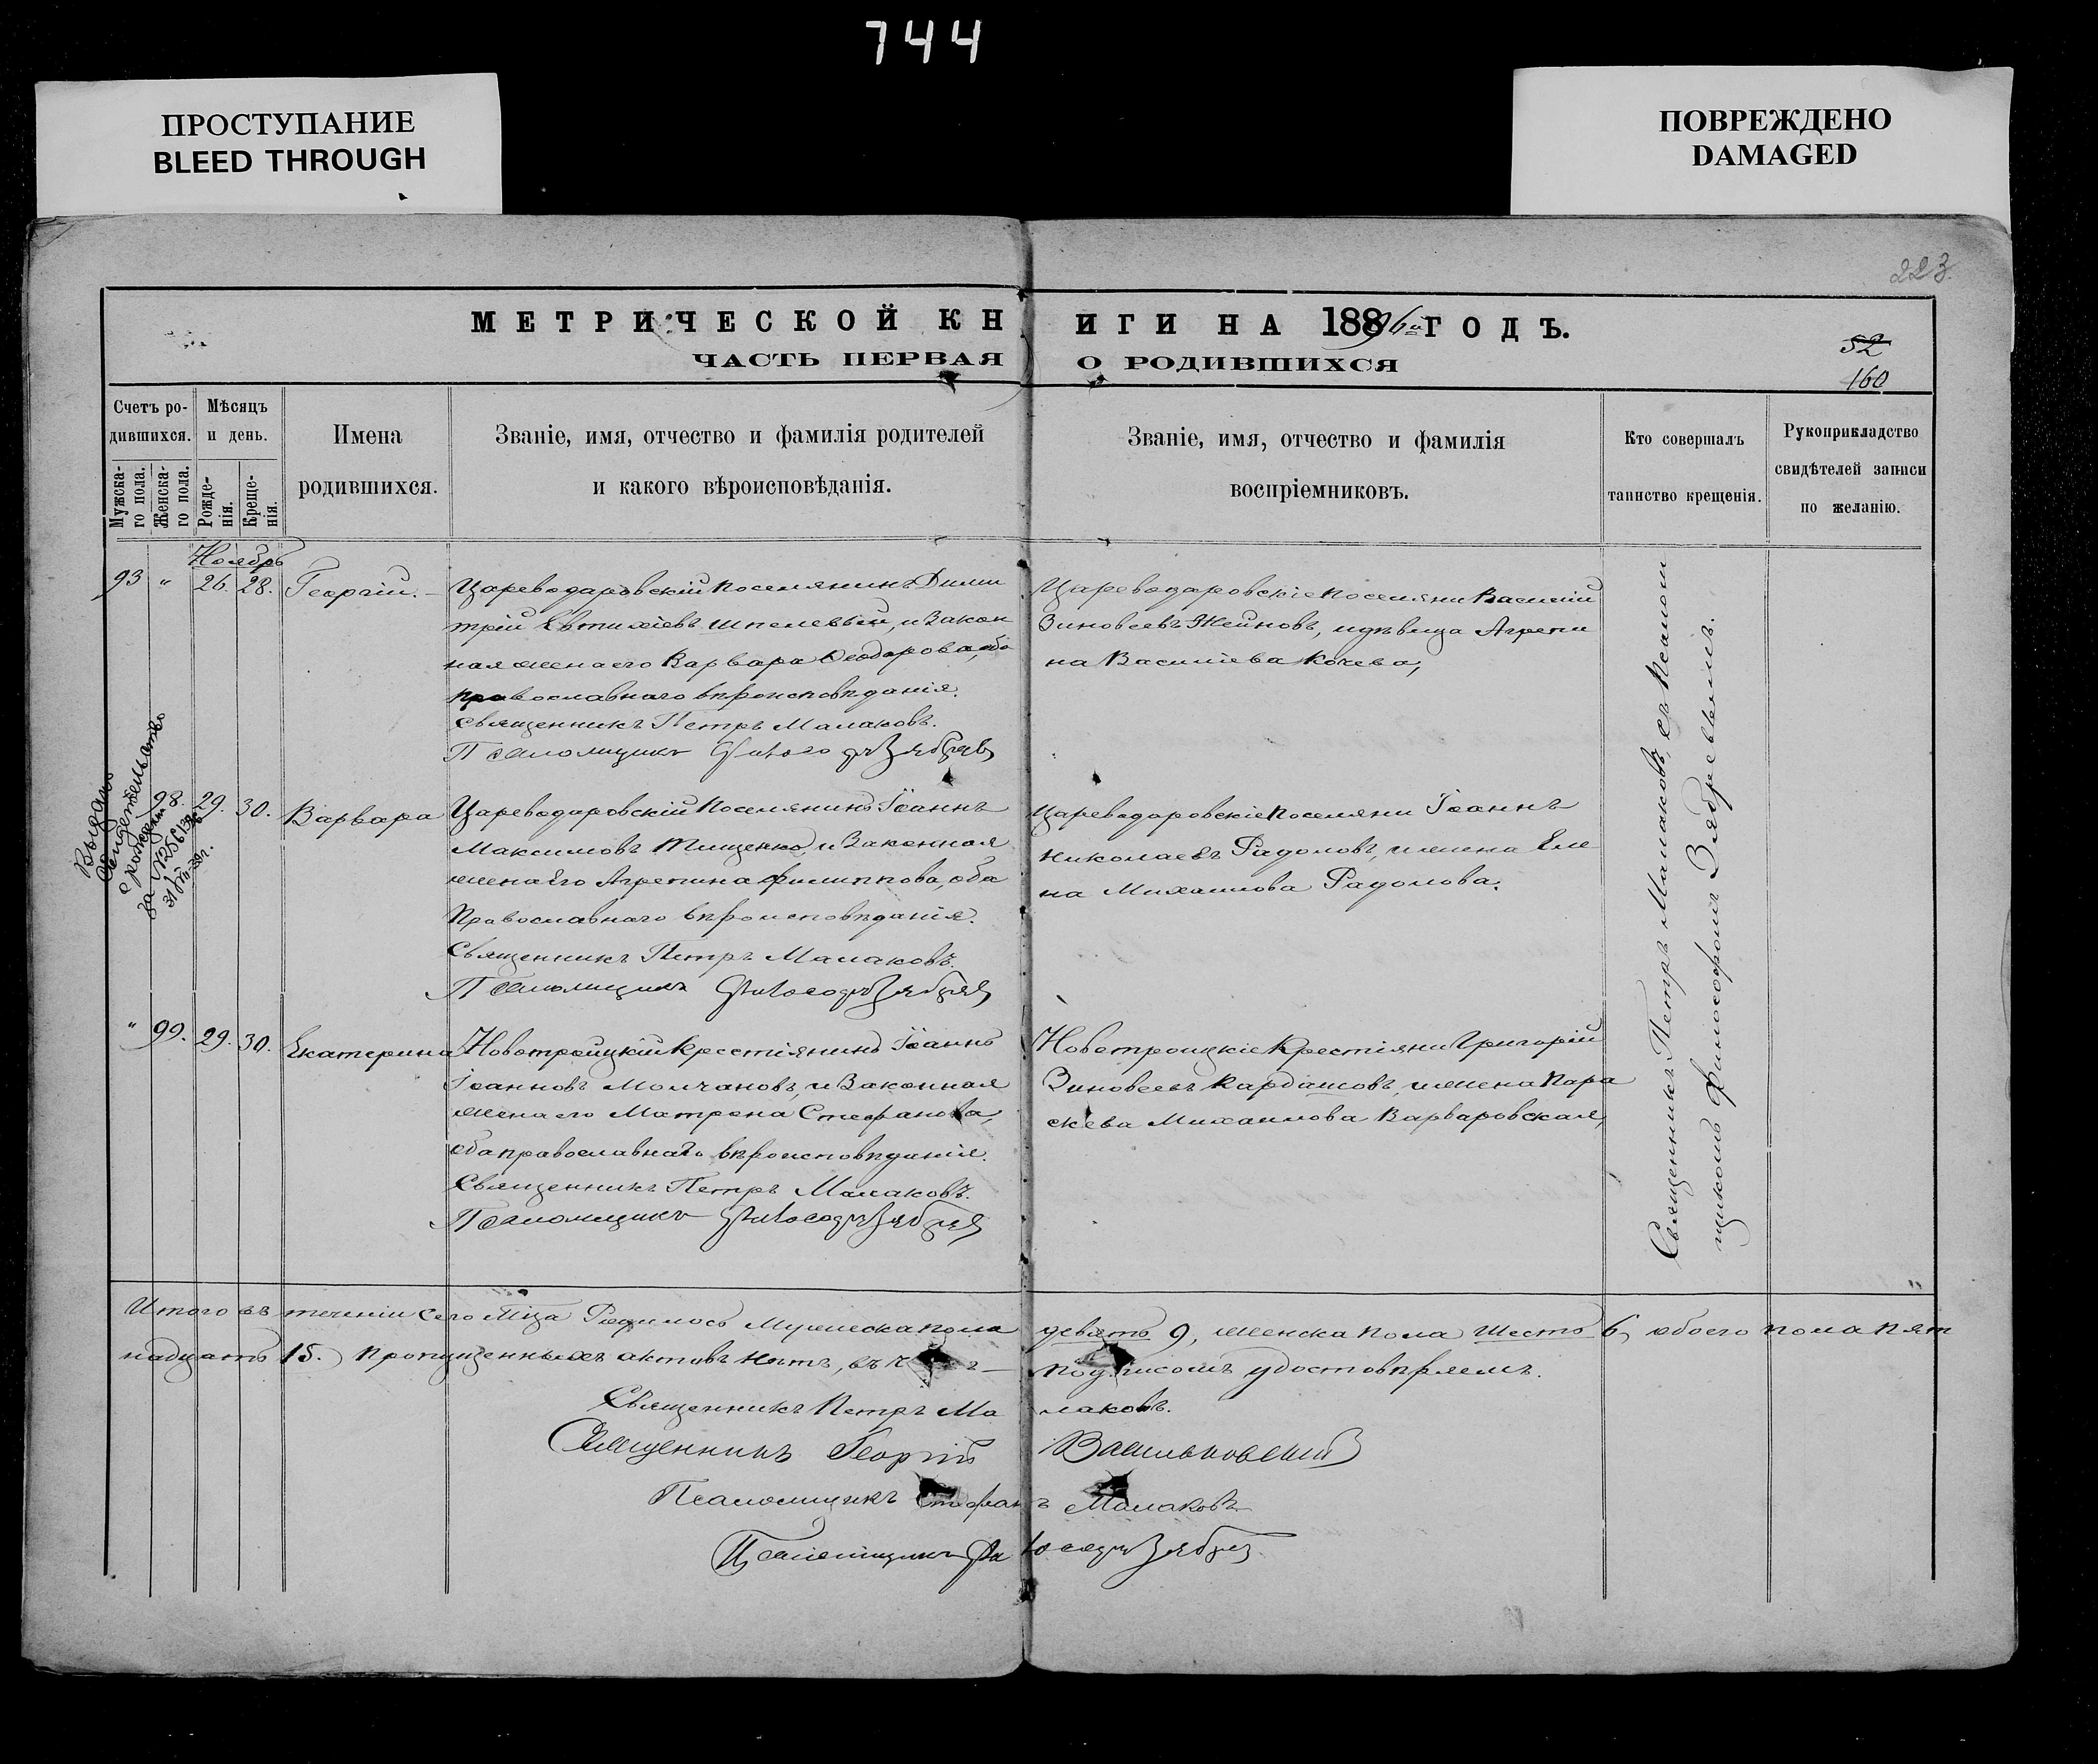 744
ПРОСТУПАНИЕ
BLEED THROUGH
ПОВРЕЖДЕНО
DAMAGED
223.
МЕТРИЧЕСКОЙ КНИГИ НА 1896й ГОДЪ.
ЧАСТЬ ПЕРВАЯ О РОДИВШИХСЯ
52
160
Счетъ родившихся.
Мужскаго пола.
Женскаго пола.
Мѣсяцъ и день.
Рожденія.
Крещенія.
Имена
родившихся.
Званіе, имя, отчество и фамилія родителей
и какого вѣроисповѣданія.
Званіе, имя, отчество и фамилія
воспріемниковъ.
Кто совершалъ
таинство крещенія.
Рукоприкладство
свидѣтелей записи
по желанію.
Ноябрь
93 " 26. 28. Георгій.
Цареводаровскій поселянинъ Дими
трій Евтихіевъ , и закон
ная жена его Варвара Ѳеодорова, оба
православнаго вѣроисповѣданія.
Священникъ Петръ Малаковъ.
Псаломщикъ Философъ Зябревъ
Цареводаровскіе поселяни Василій
Зиновеевъ Жейновъ, и дѣвица Агрепи
на Василіева Кочева,
Выдано
свидетельство
о рождении
за №
98. 29. 30. Варвара
Цареводаровскій поселянинъ Іоаннъ
Максимовъ Тищенко, и законная
жена его Агрепина Филиппова, оба
Православнаго вѣроисповѣданія.
Священникъ Петръ Малаковъ.
Псаломщикъ Философъ Зябревъ
Цареводаровскіе поселяни Іоаннъ
Николаевъ Радоловъ, и жена Еле
на Михаилова Радолова.
" 99. 29. 30. Екатерина
Новотроицкій крестіянинъ Іоаннъ
Іоанновъ Молчановъ, и законная
жена его Матрона Стефанова,
оба православнаго вѣроисповѣданія.
Священникъ Петръ Малаковъ.
Псаломщикъ Философъ Зябревъ
Новотроицкіе крестіяни Григорій
Зиновеевъ Кардашовъ, и жена Пара
скева Михаилова Варваровская,
Священникъ Петръ Малаковъ, съ Псалом
щикомъ Философомъ Зябревымъ.
Итого въ теченіи сего мѣца Родилось Мужеска пола девять 9, женска пола шесть 6, обоего пола пят
надцать 15. Пропущенныхъ актовъ нѣтъ, въ подписомъ удостовѣряемъ.
Священникъ Петръ Малаковъ.
Священникъ Георгій Васильковскій
Псаломщикъ Стефанъ Малаковъ
Псаломщикъ Философъ Зябревъ